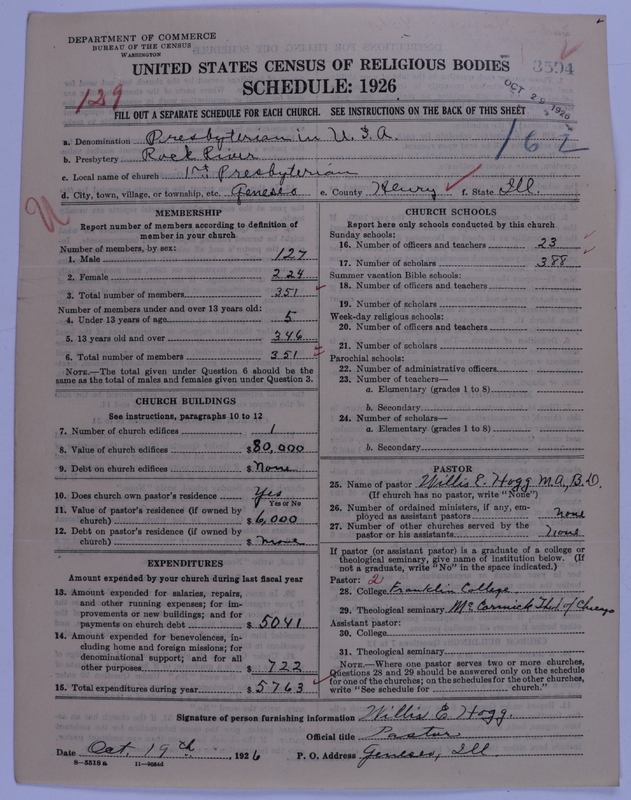 DEPARTMENT OF COMMERCE
BUREAU OF THE CENSUS
WASHINGTON
UNITED STATES CENSUS OF RELIGIOUS BODIES
SCHEDULE: 1926
3594
OCT 29 1926
129
162
FILL OUT A SEPARATE SCHEDULE FOR EACH CHURCH. SEE INSTRUCTIONS ON THE BACK OF THIS SHEET
a. Denomination Presbyterian in U.S.A.
b. Presbytery Rock River
c. Local name of church 1st Presbyterian
d. City, town, village, or township, etc. Geneseo e. County Henry f. State Ill.
MEMBERSHIP
Report number of members according to definition of
member in your church
Number of members, by sex:
1. Male 127
2. Female 224
3. Total number of members 351
Number of members under and over 13 years old:
4. Under 13 years of age 5
5. 13 years old and over 346
6. Total number of members 351
NOTE.—The total given under Question 6 should be the
same as the total of males and females given under Question 3.
CHURCH BUILDINGS
See instructions, paragraphs 10 to 12
7. Number of church edifices 1
8. Value of church edifices $80,000
9. Debt on church edifices $None
10. Does church own pastor's residence Yes
Yes or No
11. Value of pastor's residence (if owned by
church) $6,000
12. Debt on pastor's residence (if owned by
church) $none
EXPENDITURES
Amount expended by your church during last fiscal year
13. Amount expended for salaries, repairs,
and other running expenses; for im-
provements or new buildings; and for
payments on church debt $5041
14. Amount expended for benevolences, in-
cluding home and foreign missions; for
denominational support; and for all
other purposes $722
15. Total expenditures during year $5763
CHURCH SCHOOLS
Report here only schools conducted by this church
Sunday schools:
16. Number of officers and teachers 23
17. Number of scholars 388
Summer vacation Bible schools:
18. Number of officers and teachers
19. Number of scholars
Week-day religious schools:
20. Number of officers and teachers
21. Number of scholars
Parochial schools:
22. Number of administrative officers
23. Number of teachers—
a. Elementary (grades 1 to 8)
b. Secondary
24. Number of scholars—
a. Elementary (grades 1 to 8)
b. Secondary
PASTOR
25. Name of pastor Willis E. Hogg M.A., B.D.
(If church has no pastor, write "None")
26. Number of ordained ministers, if any, em-
ployed as assistant pastors none
27. Number of other churches served by the
pastor or his assistants none
If pastor (or assistant pastor) is a graduate of a college or
theological seminary, give name of institution below. (If
not a graduate, write "No" in the space indicated.)
Pastor: 2
28. College Franklin College
29. Theological seminary McCormick Theol. of Chicago
Assistant pastor:
30. College
31. Theological seminary
NOTE.—Where one pastor serves two or more churches,
Questions 28 and 29 should be answered only on the schedule
for one of the churches; on the schedules for the other churches,
write "See schedule for church."
Signature of person furnishing information Willis E Hogg.
Official title Pastor
Date Oct 19th, 1926 P. O. Address Geneseo, Ill.
8-5518 a